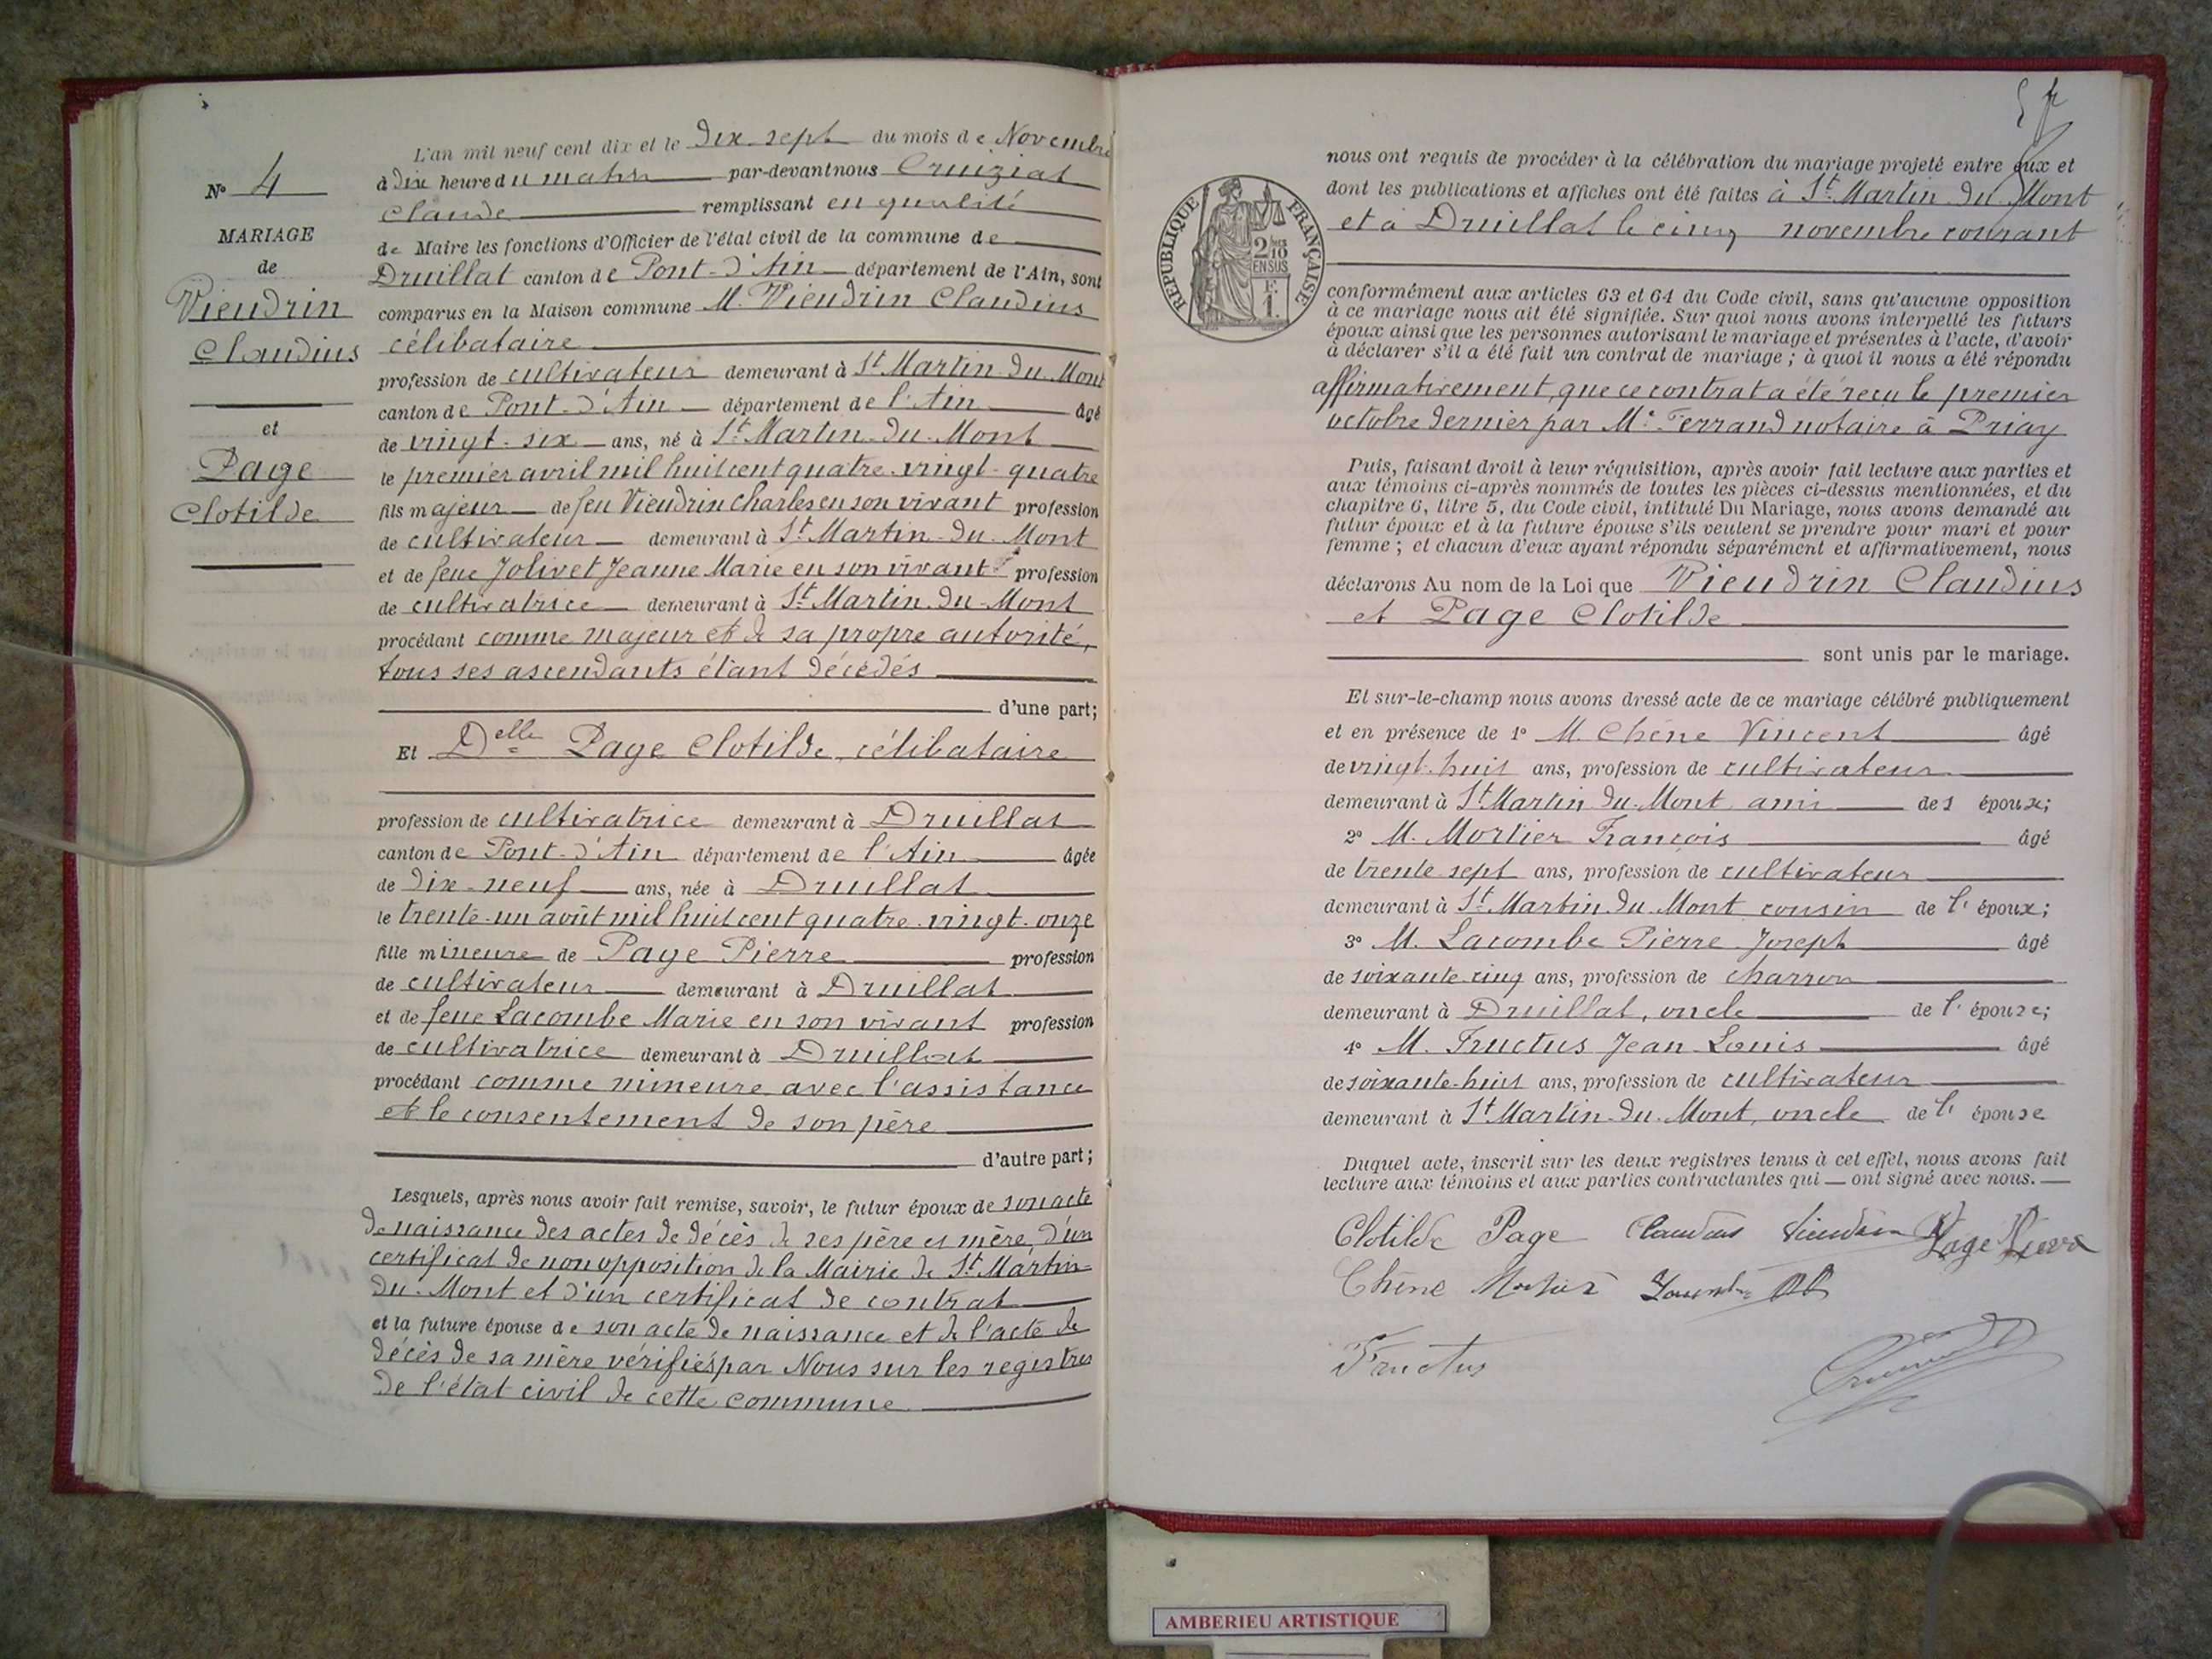 L'an mil neuf cent dix et le Dix-sept du mois de Novembre
N° 4
à Dix heure du matin par-devant nous Cruiziat
Claude remplissant en qualité
MARIAGE
de Maire les fonctions d'Officier de l'état civil de la commune de
de
Druillat canton de Pont-d'Ain département de l'Ain, sont
Vieudrin
comparus en la Maison commune M. Vieudrin Claudius
Claudius
célibataire
profession de cultivateur demeurant à St Martin-du-Mont
canton de Pont-d'Ain département de l'Ain âgé
et
de vingt-six ans, né à St Martin-du-Mont
Page
le premier avril mil huit cent quatre-vingt-quatre
Clotilde
fils majeur de feu Vieudrin Charles en son vivant profession
de cultivateur demeurant à St Martin-du-Mont
et de feue Jolivet Jeanne Marie en son vivant profession
de cultivatrice demeurant à St Martin-du-Mont
procédant comme majeur et de sa propre autorité,
tous ses ascendants étant décédés
d'une part;
Et Delle Page Clotilde, célibataire
profession de cultivatrice demeurant à Druillat
canton de Pont-d'Ain département de l'Ain âgée
de dix-neuf ans, née à Druillat
le trente-un août mil huit cent quatre-vingt-onze
fille mineure de Page Pierre profession
de cultivateur demeurant à Druillat
et de feue Lacombe Marie en son vivant profession
de cultivatrice demeurant à Druillat
procédant comme mineure avec l'assistance
et le consentement de son père
d'autre part;
Lesquels, après nous avoir fait remise, savoir, le futur époux de son acte
de naissance des actes de décès de ses père et mère, d'un
certificat de non opposition de la Mairie de St Martin-
du-Mont et d'un certificat de contrat
et la future épouse de son acte de naissance et de l'acte de
décès de sa mère vérifiés par Nous sur les registres
de l'état civil de cette commune
nous ont requis de procéder à la célébration du mariage projeté entre eux et
dont les publications et affiches ont été faites à St Martin-du-Mont
et à Druillat le cinq novembre courant
RÉPUBLIQUE FRANÇAISE
2/10
EN SUS
F.
1.
conformément aux articles 63 et 64 du Code civil, sans qu'aucune opposition
à ce mariage nous ait été signifiée. Sur quoi nous avons interpellé les futurs
époux ainsi que les personnes autorisant le mariage et présentes à l'acte, d'avoir
à déclarer s'il a été fait un contrat de mariage; à quoi il nous a été répondu
affirmativement, que ce contrat a été reçu le premier
octobre dernier par Me Ferrand notaire à Priay
Puis, faisant droit à leur réquisition, après avoir fait lecture aux parties et
aux témoins ci-après nommés de toutes les pièces ci-dessus mentionnées, et du
chapitre 6, titre 5, du Code civil, intitulé Du Mariage, nous avons demandé au
futur époux et à la future épouse s'ils veulent se prendre pour mari et pour
femme; et chacun d'eux ayant répondu séparément et affirmativement, nous
déclarons Au nom de la Loi que Vieudrin Claudius
et Page Clotilde
sont unis par le mariage.
Et sur-le-champ nous avons dressé acte de ce mariage célébré publiquement
et en présence de 1° M. Chêne Vincent âgé
de vingt-huit ans, profession de cultivateur
demeurant à St Martin-du-Mont ami des époux;
2° M. Mortier François âgé
de trente sept ans, profession de cultivateur
demeurant à St Martin-du-Mont cousin de l'époux;
3° M. Lacombe Pierre-Joseph âgé
de soixante-cinq ans, profession de charron
demeurant à Druillat, oncle de l'épouse;
4° M. Fructus Jean-Louis âgé
de soixante-huit ans, profession de cultivateur
demeurant à St Martin-du-Mont, oncle de l'épouse
Duquel acte, inscrit sur les deux registres tenus à cet effet, nous avons fait
lecture aux témoins et aux parties contractantes qui — ont signé avec nous.
Clotilde Page Claudius Vieudrin Page Pierre
Chêne Mortier
Fructus
AMBERIEU ARTISTIQUE